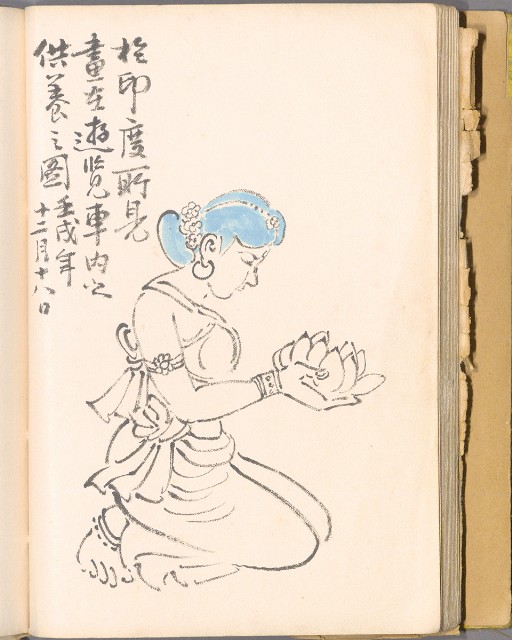 於印度所見
畫在遊覽車內之
供養之圖 壬戌年
十二月十八日